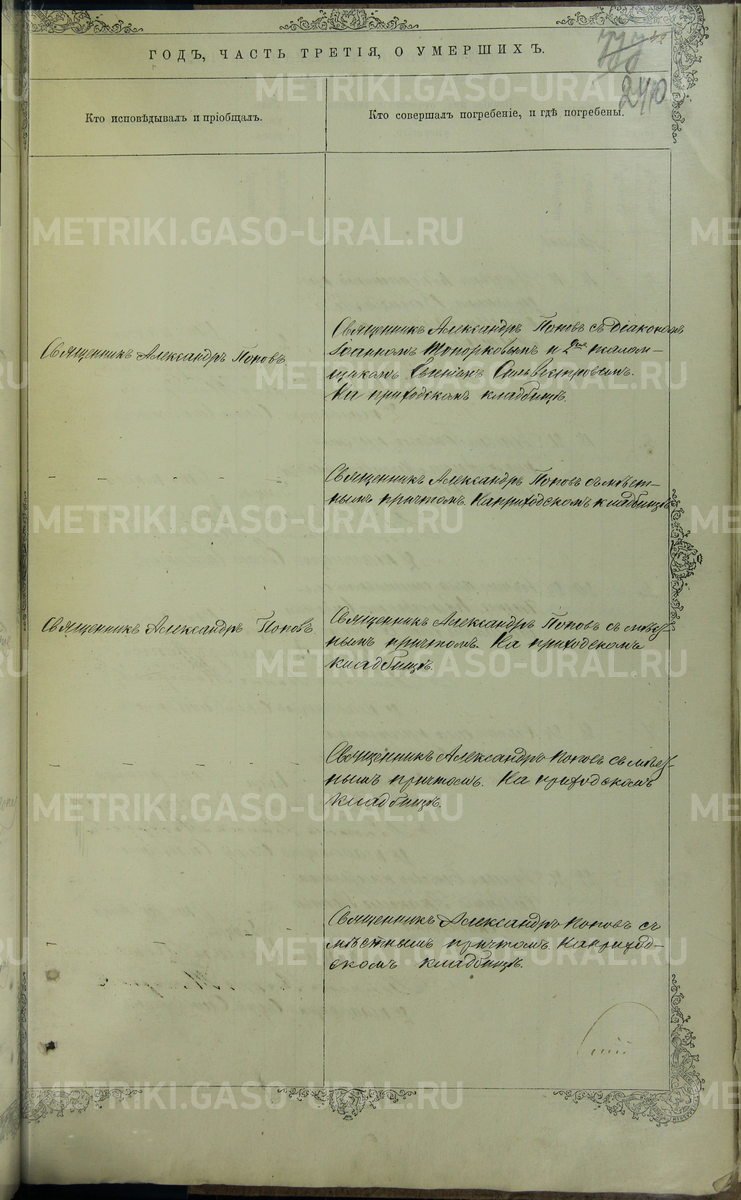 ГОДЪ, ЧАСТЬ ТРЕТІЯ, О УМЕРШИХЪ.
240
Кто исповѣдывалъ и пріобщалъ.
Кто совершалъ погребеніе, и гдѣ погребены.
Священникъ Александръ Поповъ.
Священникъ Александръ Поповъ съ діакономъ
Іоанномъ Топорковымъ и псалом-
щикомъ Евгеніемъ Сильвестровымъ.
На приходскомъ кладбищѣ.
- - - - -
Священникъ Александръ Поповъ съ мѣст-
нымъ причтомъ. На приходскомъ кладбищѣ.
Священникъ Александръ Поповъ
Священникъ Александръ Поповъ съ мѣст-
нымъ причтомъ. На приходскомъ
кладбищѣ.
- - - - -
Священникъ Александръ Поповъ съ мѣст-
нымъ причтомъ. На приходскомъ
кладбищѣ.
- - - -
Священникъ Александръ Поповъ съ
мѣстнымъ причтомъ. На приход-
скомъ кладбищѣ.
METRIKI.GASO-URAL.RU